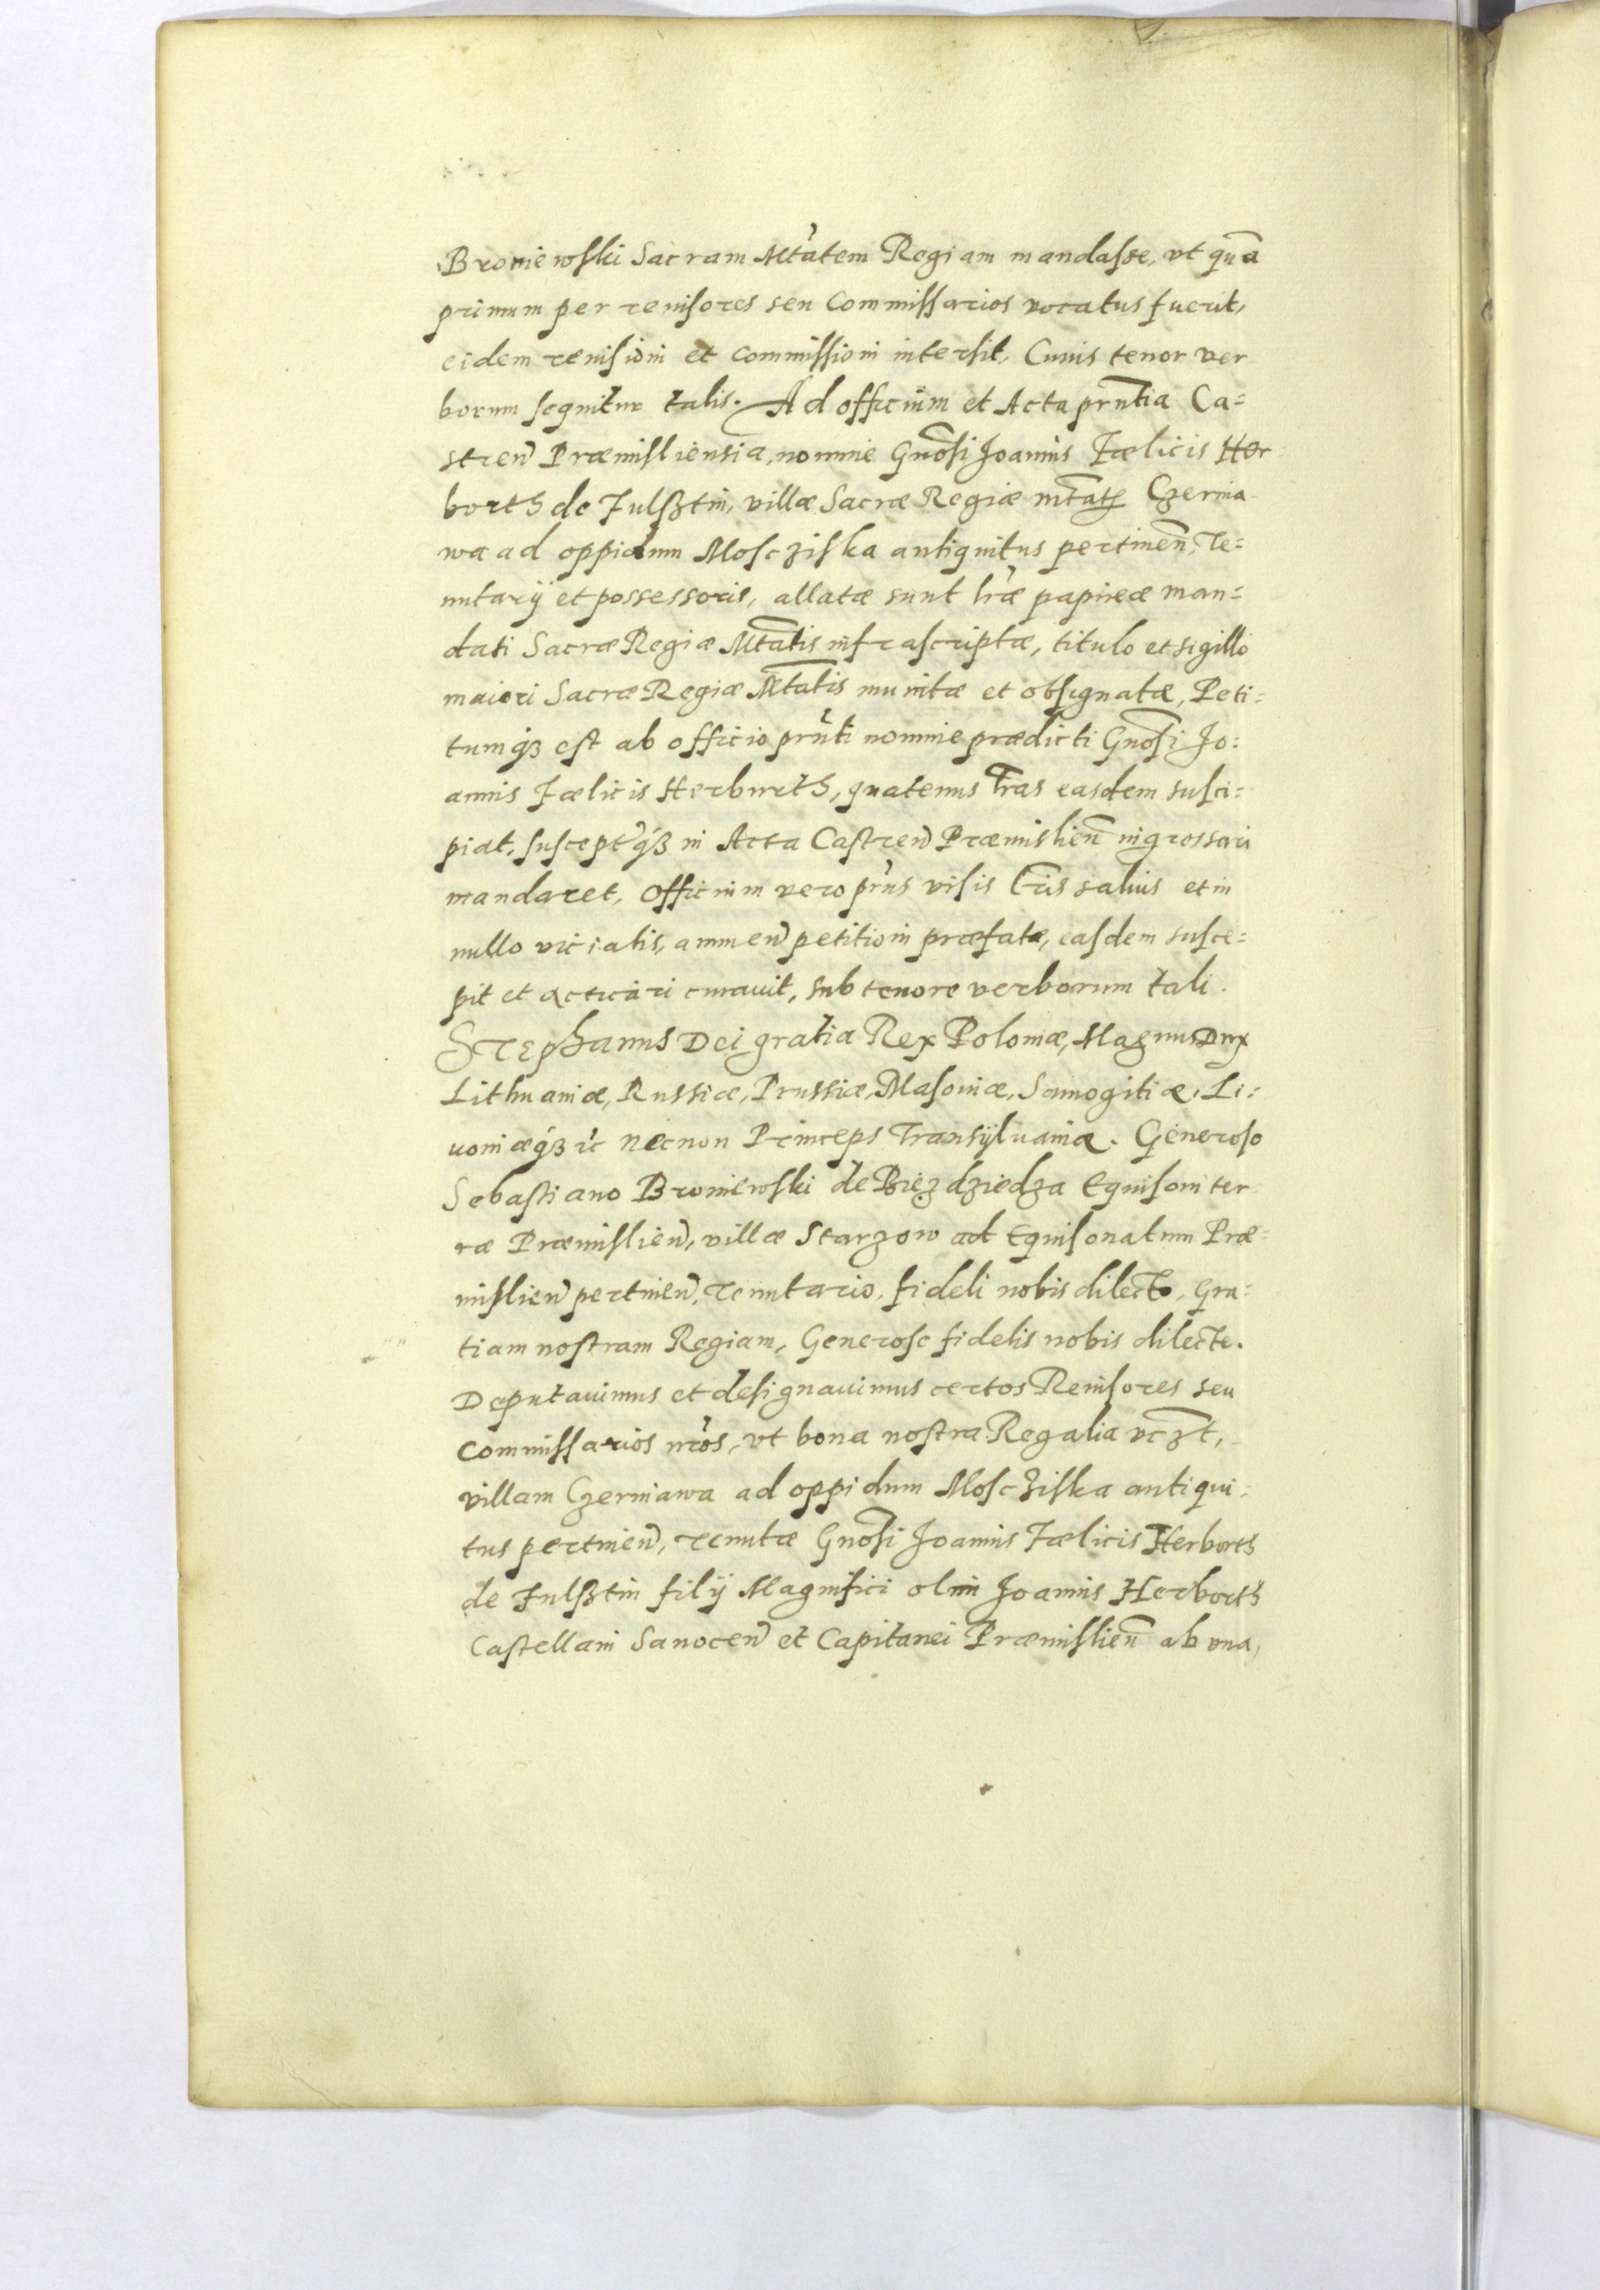 Broniewski Sacram Mtãtem Regiam mandasse, vt quã
primum per reuisores seu Commissarios vocatus fuerit,
eidem reuisioni et commissioni intersit, Cuius tenor ver
borum sequitur talis. Ad officium et Acta prñtia Ca=
stren̄ Præmisliensia, nomine Gnõsi Joannis Fælicis Her
borth de Fulsztin, villæ Sacræ Regiæ mtãtis Czernia
wa ad oppidum Moscziska antiquitus pertinen̄, Te=
nutarij et possessoris, allatæ sunt lræ papireæ man=
dati Sacræ Regiæ Mtãtis infrascriptæ, titulo et sigillo
maiori Sacræ Regiæ Mtãtis munitæ et obsignatæ, Peti=
tumq3 est ab officio prñti nomine prædicti Gnõsi Jo=
annis Fælicis Herburth, quatenus lras easdem susci=
piat, susceptq3 in Acta Castren̄ Præmislien̄ ingrossari
mandaret, Officium vero prñs visis lris saluis et in
nullo viciatis, annuen̄ petitioni præfatæ, easdem susce=
pit et acticari curauit, sub tenore verborum tali.
Stephanus Dei gratia Rex Poloniæ, Magnus Dux
Lithuaniæ, Russiæ, Prussiæ, Masouiæ, Samogitiæ, Li=
uoniæq3 ic necnon Princeps Transÿluaniæ. Generoso
Sebastiano Broniewski de Biezdziedza Equisoni ter
ræ Præmislien̄, villæ Starzow ad Equisonatum Præ=
mislien̄ pertinen̄, Tenutario, fideli nobis dilecto, Gra=
tiam nostram Regiam, Generose fidelis nobis dilecte.
Deputauimus et designauimus certos Reuisores seu
Commissarios nrõs, vt bona nostra Regalia vczt,
villam Czerniawa ad oppidum Moscziska antiqui=
tus pertinen̄, tenutæ Gnõsi Joannis Fælicis Herborth
de Fulsztin filij Magnifici olim Joannis Herborth
Castellani Sanocen̄ et Capitanei Præmislien̄ ab vna,